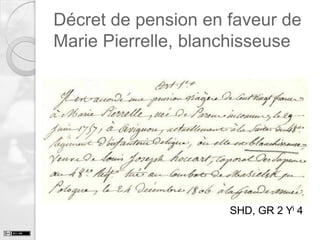 Décret de pension en faveur de
Marie Pierrelle, blanchisseuse
Art. 1er
Il est accordé une pension viagère de Cent Vingt francs
à Marie Pierrelle, née de Parens inconnus, le 29
juin 1757, à Avignon, actuellement à la suite du 48eme
régiment d'infanterie de ligne, où elle est blanchisseuse,
Veuve de Louis Joseph Caporal des Sapeurs
au 48eme Régt tué au Combat de en
Pologne, le 24 décembre 1806 à la Grande armée.
SHD, GR 2 Yf 4